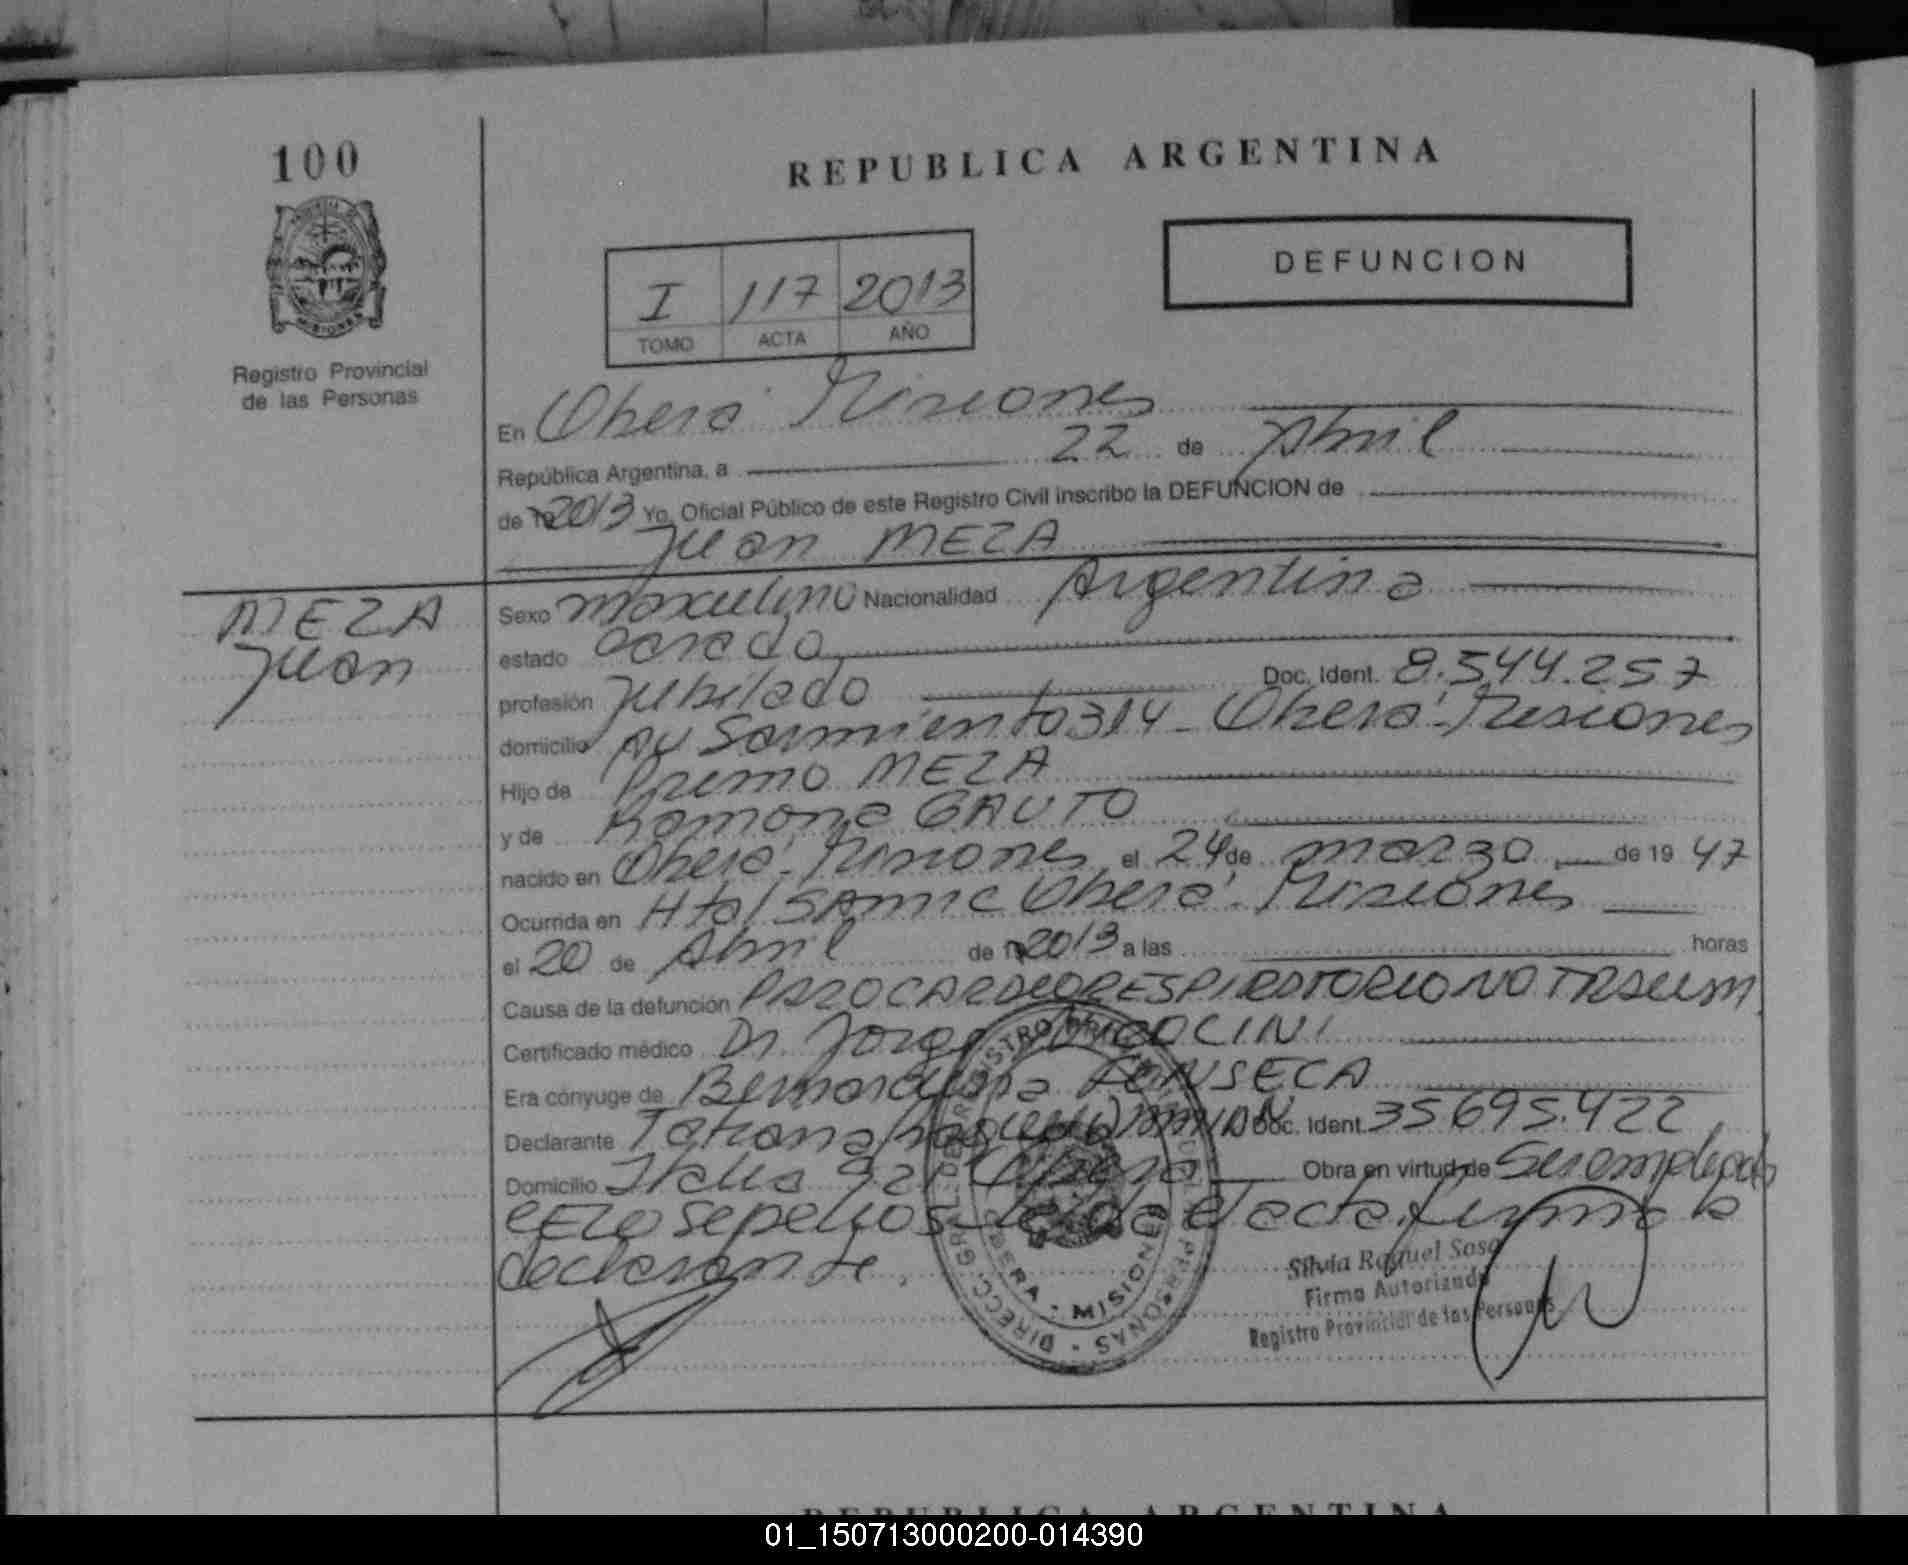 100
REPUBLICA ARGENTINA
DEFUNCION
I 117 2013
TOMO ACTA AÑO
Registro Provincial
de las Personas
En Oberá Misiones
República Argentina, a 22 de Abril
de 19 2013 Yo, Oficial Público de este Registro Civil inscribo la DEFUNCION de
Juan MEZA
MEZA
Juan
Sexo masculino Nacionalidad Argentina
estado casado
Doc. Ident. 8.544.257
profesión Jubilado
domicilio Av Sarmiento 314 - Oberá - Misiones
Hijo de Primo MEZA
y de Ramona GAUTO
nacido en Oberá - Misiones el 24 de marzo de 19 47
Ocurrida en Htal SAMIC Oberá - Misiones
el 20 de Abril de 2013 a las horas
Causa de la defunción PAROCARDIORESPIRATORIO NO TRAUM
Certificado médico Dr. Jorge
Era cónyuge de Bernardina FONSECA
Declarante Tatiana Doc. Ident. 35695.422
Domicilio Italia 921 Oberá Obra en virtud de Ser empleada
sepelios Leída el acta firma la
declarante.
DIRECC. GRAL. DE REGISTRO PROVINCIAL DE LAS PERSONAS
OBERA - MISIONES
Silvia Raquel Sosa
Firma Autorizada
Registro Provincial de las Personas
REPUBLICA ARGENTINA
01_150713000200-014390